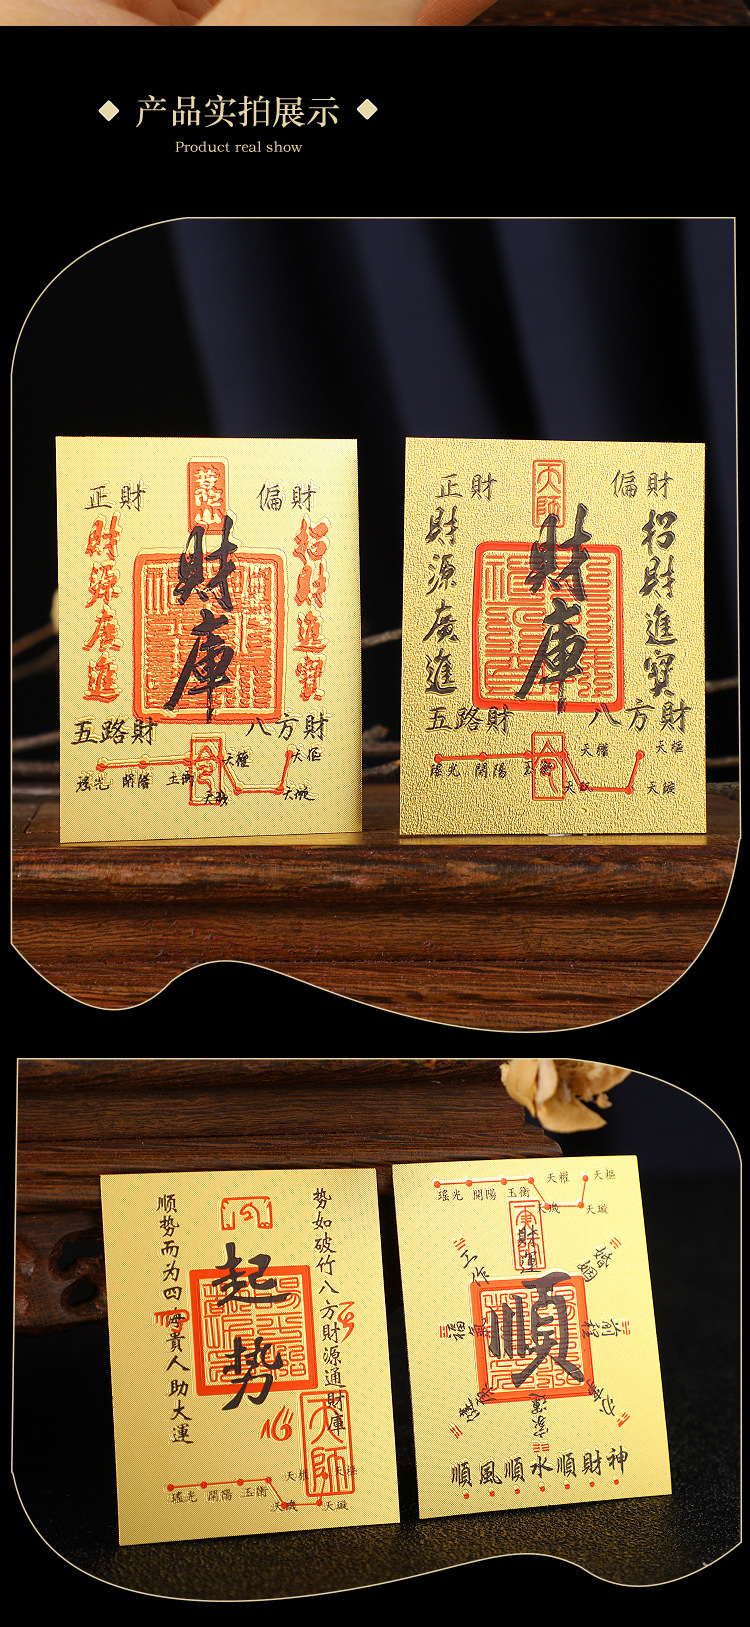 产品实拍展示
Product real show
普陀山
正財
偏財
財源廣進
財庫
招財進寶
五路財
八方財
瑤光 開陽 玉衡 天權 天樞
天璣 天璇
天師
正財
偏財
財源廣進
財庫
招財進寶
五路財
八方財
瑤光 開陽 玉衡 天權 天樞
天璣 天璇
势如破竹八方財源通財庫
起势
顺势而为四海貴人助大運
天師
瑤光 開陽 玉衡 天權 天樞
天璣 天璇
瑤光 開陽 玉衡 天權 天樞
天璣 天璇
財運
工作
婚姻
福氣
順
前程
家運
順風順水順財神